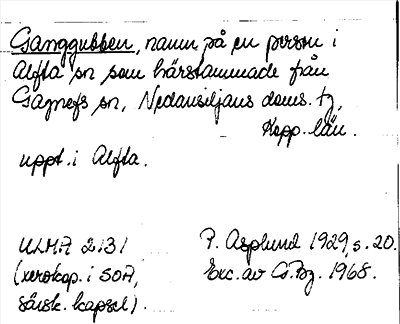 Ganggubben, namn på en person i
Alfta sn som härstammade från
Gagnefs sn, Nedansiljans doms. tg,
Kopp. län.
uppt. i Alfta.
ULMA 2131
(xerokop. i SOA,
särsk. kapsel).
P. Asplund 1929, s. 20.
Exc. av 1968.